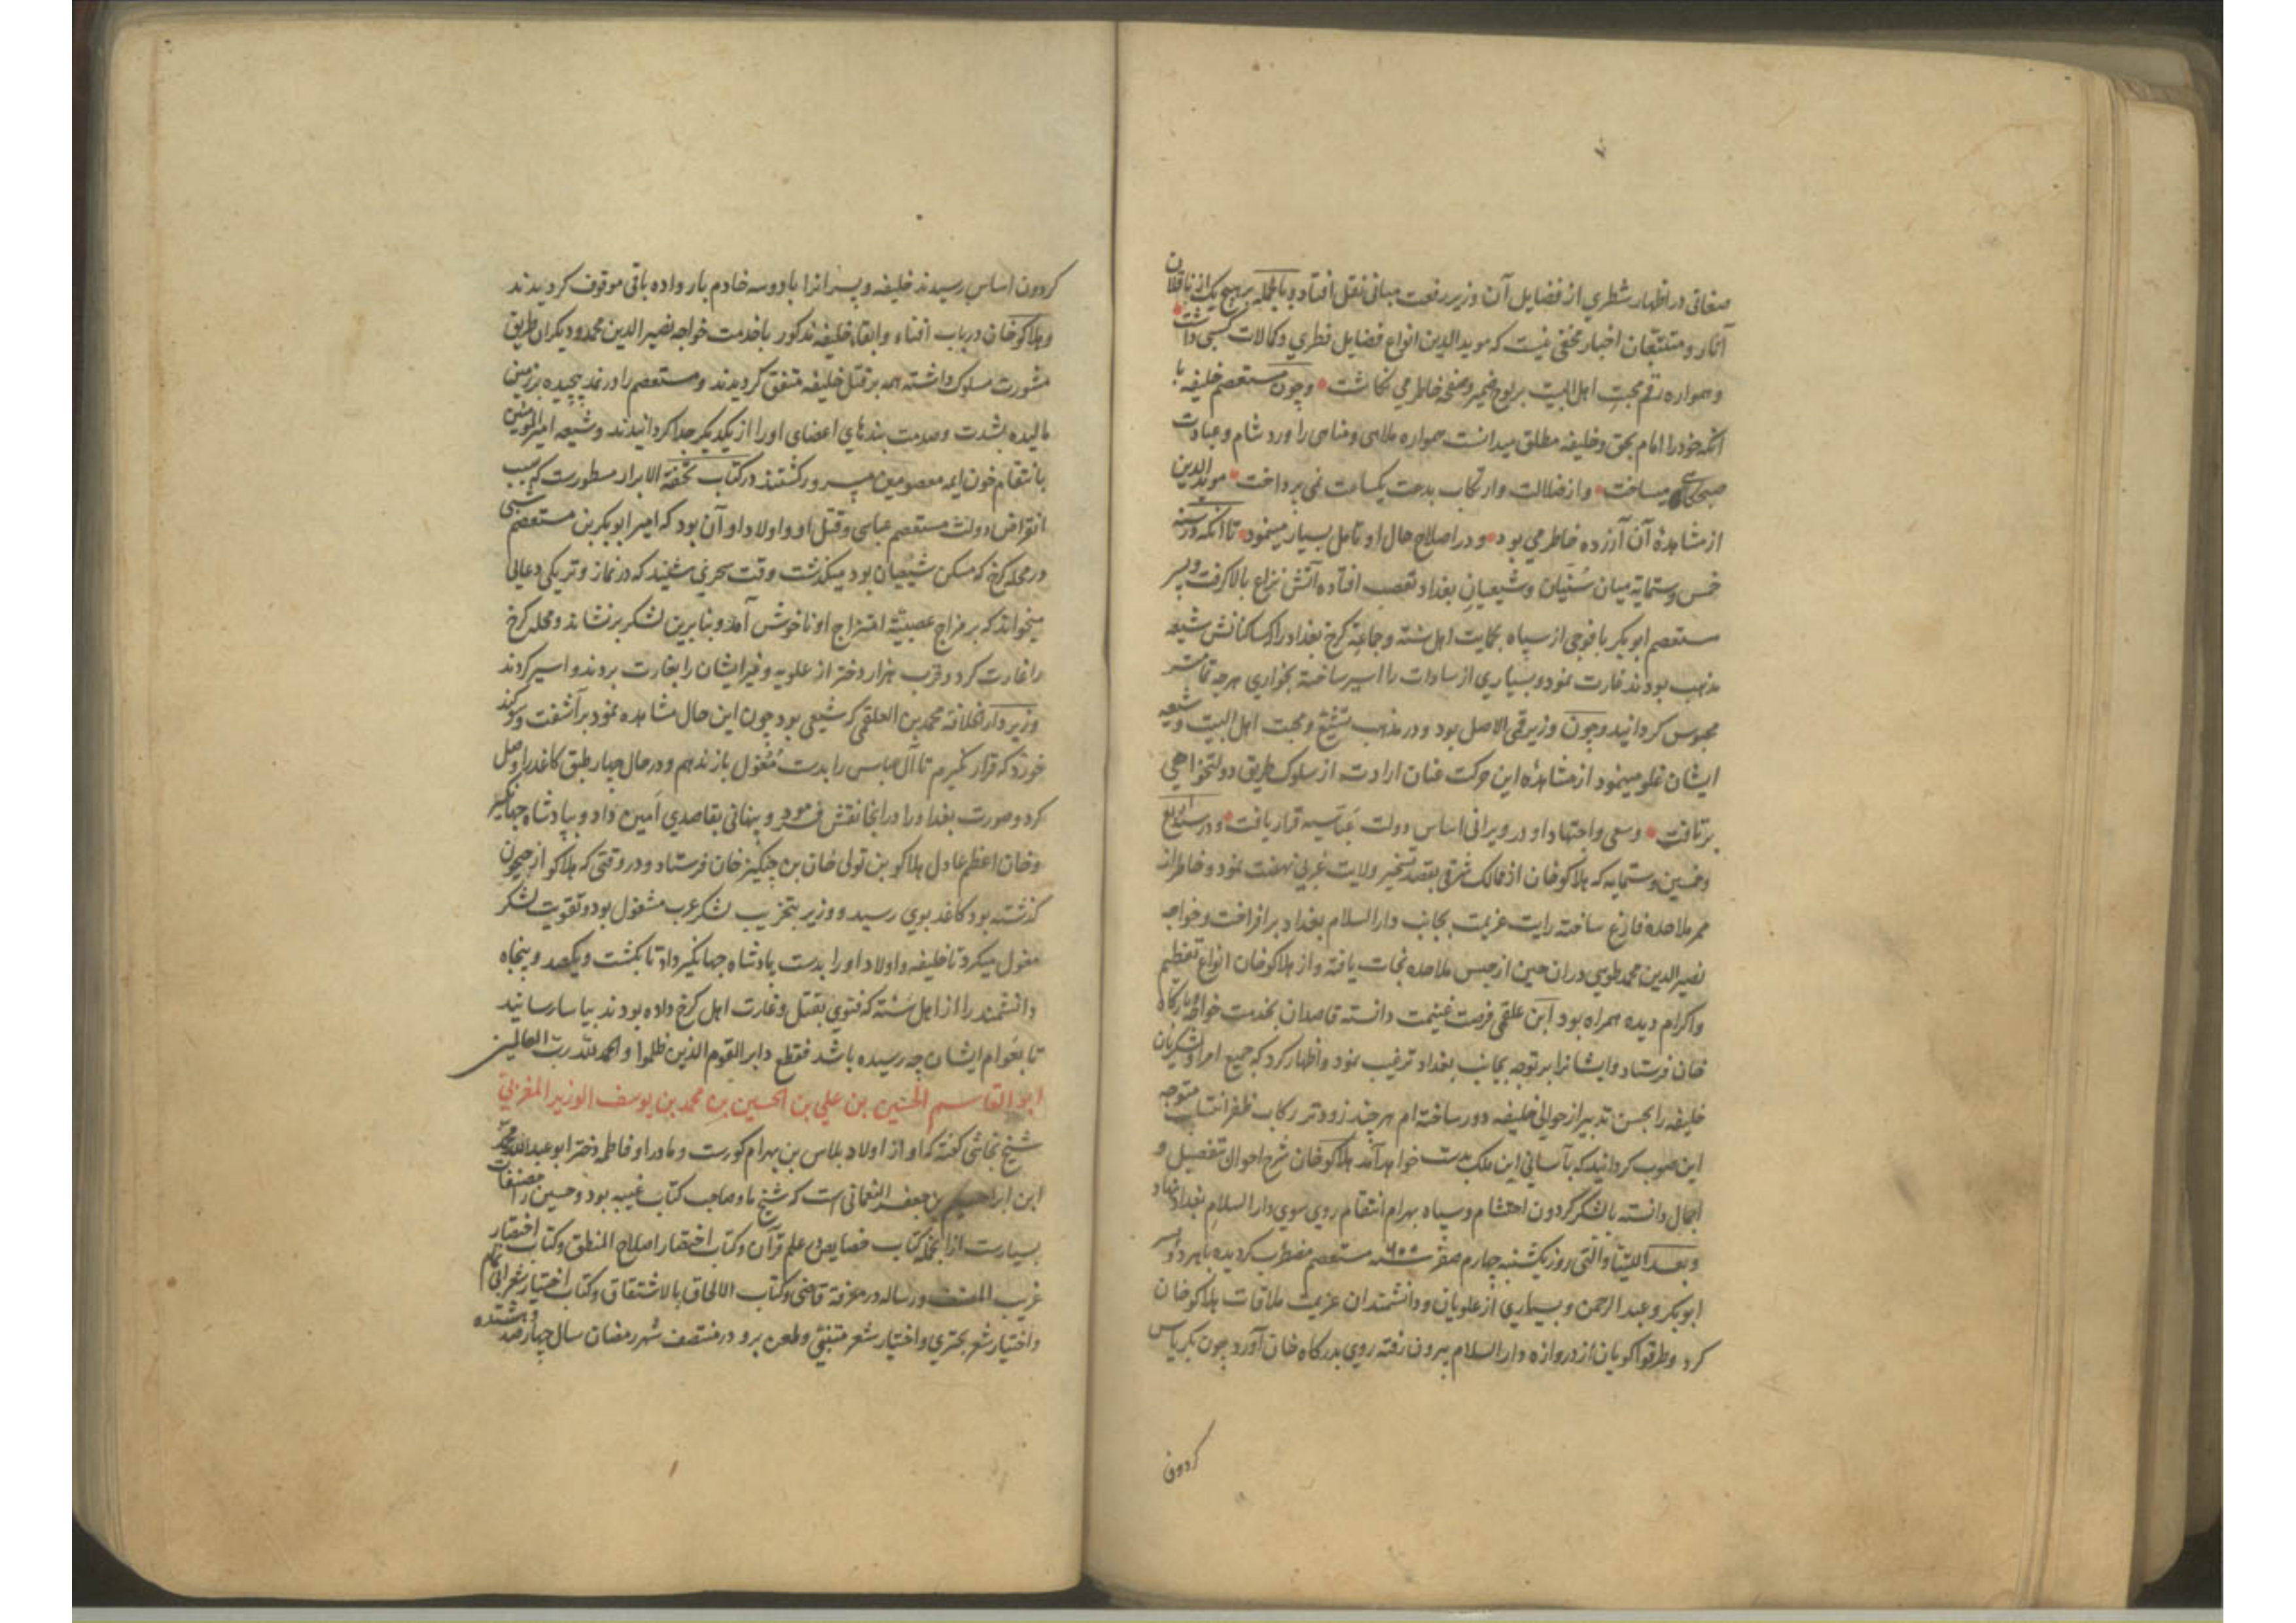 صغانی در اظهار شطری از فضایل آن وزیر رفعت مبانی نقل افتاد و بالجمله بر هیچ یک از ناقلان
آثار و متتبعان اخبار مخفی نیست که مویدالدین انواع فضایل فطری و کمالات کسبی داشت
و همواره رقم محبت اهل البیت بر لوح ضمیر و صفحه خاطر می نکاشت و چون مستعصم خلیفه با
آنکه خود را امام بحق و خلیفه مطلق میدانست همواره ملاهی و مناهی را ورد شام و عبادت
صبحکاهی میساخت و از ضلالت و ارتکاب بدعت یکساعت نمی پرداخت مویدالدین
از مشاهدهٔ آن آزرده خاطر می بود و در اصلاح حال او تامل بسیار مینمود تا آنکه در سنه
خمس و ستمایه میان سُنیّان و شیعیان بغداد تعصب افتاده آتش نزاع بالا کرفت و پسر
مستعصم ابوبکر با فوجی از سپاه بحمایت اهل سُنّه و جماعة کرخ بغداد را که ساکنانش شیعه
مذهب بودند غارت نمود و بسیاری از سادات را اسیر ساخته بخواری هرچه تمامتر
محبوس کردانید و چون وزیر قمی الاصل بود و در مذهب تشیّع و محبت اهل البیت و شیعه
ایشان غلو مینمود از مشاهدهٔ این حرکت عنان ارادت از سلوک طریق دولتخواهی
برتافت و سعی و اجتهاد او در ویرانی اساس دولت عَبّاسیه قرار یافت و در سنه اربع
و خمسین و ستمایه که هلاکوخان از ممالک شرقی بقصد تسخیر ولایت غربی نهضت نمود و خاطر از
ممر ملاحده فارغ ساخته رایت عزیمت بجانب دارالسلام بغداد برافراخت و خواجه
نصیرالدین محمد طوسی در ان حین از حبس ملاحده نجات یافته و از هلاکوخان انواع تعظیم
و اکرام دیده همراه بود ابن علقمی فرصت غنیمت دانسته قاصدان بخدمت خواجه و بارکاه
خان فرستاد و ایشانرا بر توجه بجانب بغداد ترغیب نمود و اظهار کرد که جمیع امرا و لشکریان
خلیفه را بحسن تدبیر از حوالی خلیفه دور ساخته ام هرچند زودتر رکاب ظفر انتساب متوجه
این صوب کردانید که بآسانی این ملک بدست خواهد آمد هلاکوخان شرح احوال تفضیل و
اجمال دانسته با لشکر کردون احتشام و سپاه بهرام انتقام روی سوی دارالسلام بغداد نهاد
و بعد اللتیا و التی روز یکشنبه چهارم صفر سنه ۶۵۵ مستعصم مضطرب کردیده با هر دو پسر
ابوبکر و عبدالرحمن و بسیاری از علویان و دانشمندان عزیمت ملاقات هلاکوخان
کرد و طرقوا کویان از دروازه دارالسلام بیرون رفته روی بدرکاه خان آورد چون بکریاس
کردون
کردون اساس رسیدند خلیفه و پسرانرا با دو سه خادم بار داده باقی موقوف کردیدند
و هلاکوخان در باب افناء و ابقاء خلیفه مذکور با خدمت خواجه نصیرالدین محمد و دیکران طریق
مشورت مسلوک داشته همه بر قتل خلیفه متفق کردیدند و مستعصم را در نمد پیچیده بر زمین
مالیده بشدت و صدمت بندهای اعضای او را از یکدیکر جدا کردانیدند و شیعه امیرالمومنین
بانتقام خون ایمه معصومین مسرور کشتند در کتاب تحفة الابرار مسطورست که سبب
انقراض دولت مستعصم عباسی و قتل او و اولاد او آن بود که امیر ابوبکر بن مستعصم شبی
در محله کرخ که مسکن شیعیان بود میکذشت وقت سحری شنید که در نماز وتر یکی دعائی
میخواند که بر مزاج عصبیّة امتزاج او ناخوش آمد و بنابرین لشکر برنشاند و محله کرخ
را غارت کرد و قرب هزار دختر از علویه و غیر ایشان را بغارت بردند و اسیر کردند
وزیر دار الخلافة محمد بن العلقمی که شیعی بود چون این حال مشاهده نمود برآشفت و سوکند
خورد که قرار نکیرم تا آل عباس را بدست مُغول باز ندهم و در حال چهار طبق کاغذ را وصل
کرد و صورت بغداد را در انجا نقش فرمود و پنهانی بقاصدی امین داد و بپادشاه جهانکیر
و خان اعظم عادل هلاکو بن تولی خان بن چنکیز خان فرستاد و در وقتی که هلاکو از جیحون
کذشته بود کاغذ بوی رسید و وزیر بتخریب لشکر عرب مشغول بود و تقویت لشکر
مغول میکرد تا خلیفه و اولاد او را بدست پادشاه جهانکیر داد تا بکشت و یکصد و پنجاه
دانشمند را از اهل سُنّة که فتوی بقتل و غارت اهل کرخ داده بودند بیاسا رسانید
تا بعوام ایشان چه رسیده باشد فقطع دابر القوم الذین ظلموا و الحمد لله رب العالمین
ابو القاسم الحسین بن علی بن الحسین بن محمد بن یوسف الوزیر المغربیّ
شیخ نجاشی کفته که او از اولاد بلاس بن بهرام کورست و مادر او فاطمه دختر ابوعبدالله محمد
ابن ابراهیم بن جعفر النعمانی است که شیخ ما و صاحب کتاب غیبه بود و حسین را مصنفات
بسیارست از انجمله کتاب خصایص در علم قرآن و کتاب اختصار اصلاح المنطق و کتاب اختصار
غریب المصنف و رساله در معرفة قاضی و کتاب الالحاق بالاشتقاق و کتاب اختیار شعر ابی تمام
و اختیار شعر بحتری و اختیار شعر متنبّی و طعن برو و در منتصف شهر رمضان سال چهارصد و هشتده